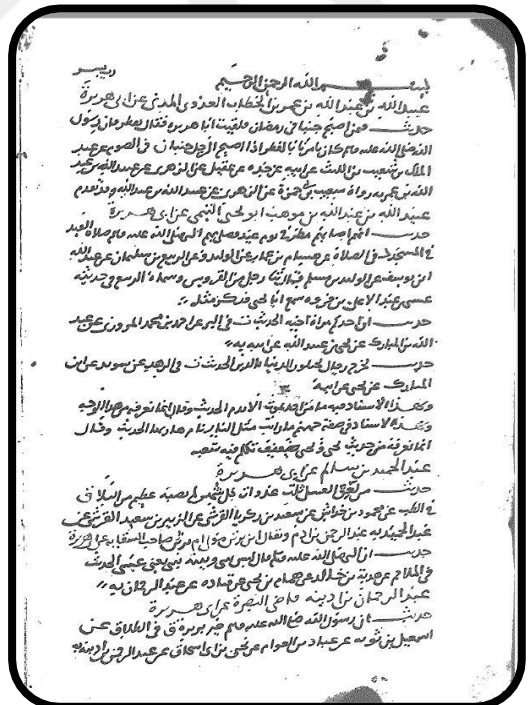 بسم الله الرحمن الرحيم
عبيد الله بن عبد الله بن عمر بن الخطاب العدوي المدني عن ابى هريرة
حديث من اصبح جنبا فى رمضان فلقيت ابا هريرة فقال يفطر فان رسول
الله صلى الله عليه وسلم كان يأمرنا بالفطر اذا اصبح الرجل جنبا ن فى الصوم عن عبد
الملك بن شعيب بن الليث عن ابيه عن جده عن عقيل عن الزهرى عن عبيد الله بن عبد
الله بن عمر به رواه شعيب بن ابى حمزة عن الزهرى عن عبد الله بن عبد الله وقد تقدم
عبيد الله بن عبد الله بن موهب ابو يحيى التيمى عن ابى هريرة
حديث انهم اصابهم مطر فى يوم عيد فصلى بهم النبى صلى الله عليه وسلم صلاة العيد
فى المسجد د فى الصلاة عن هشام بن عمار عن الوليد وعن الربيع بن سليمان عن عبد الله
ابن يوسف عن الوليد بن مسلم قال ثنا رجل من الفرويين وسماه الربيع فى حديثه
عيسى بن عبد الاعلى بن ابى فروه سمع ابا يحيى فذكر مثله
حديث ان احدكم مرآة اخيه الحديث ت فى البر عن احمد بن محمد المروزى عن عبد
الله بن المبارك عن يحيى بن عبيد الله عن ابيه به
حديث يخرج رجال يختلون الدنيا بالدين الحديث ت فى الزهد عن سويد عن ابن
المبارك عن يحيى عن ابيه
وبهذا الاسناد فيه ما من احد يموت الا ندم الحديث وقال انما نعرفه من هذا الوجه
وبهذا الاسناد فى صفة جهنم ما رايت مثل النار نام هاربها الحديث وقال
انما نعرفه من حديث يحيى ويحيى ضعيف تكلم فيه شعبه
عبد الحميد بن سالم عن ابى هريرة
حديث من لعق العسل ثلاث غدوات كل شهر لم يصبه عظيم من البلاء ق
فى الطب عن محمود بن خداش عن سعيد بن زكريا القرشى عن الزبير بن سعيد القرشى عن
عبد الحميد به
حديث ان النبى صلى الله عليه وسلم قال ليس بينى وبينه نبى يعنى عيسى الحديث
فى الملاحم عن هدبة بن خالد عن همام بن يحيى عن قتادة عن عبد الرحمان به
عبد الرحمان بن اذينه قاضى البصرة عن ابى هريرة
حديث ان رسول الله صلى الله عليه وسلم خير بريرة ق فى الطلاق عن
اسمعيل بن توبه عن عباد بن العوام عن يحيى بن ابى اسحاق عن عبد الرحمن بن اذينه به